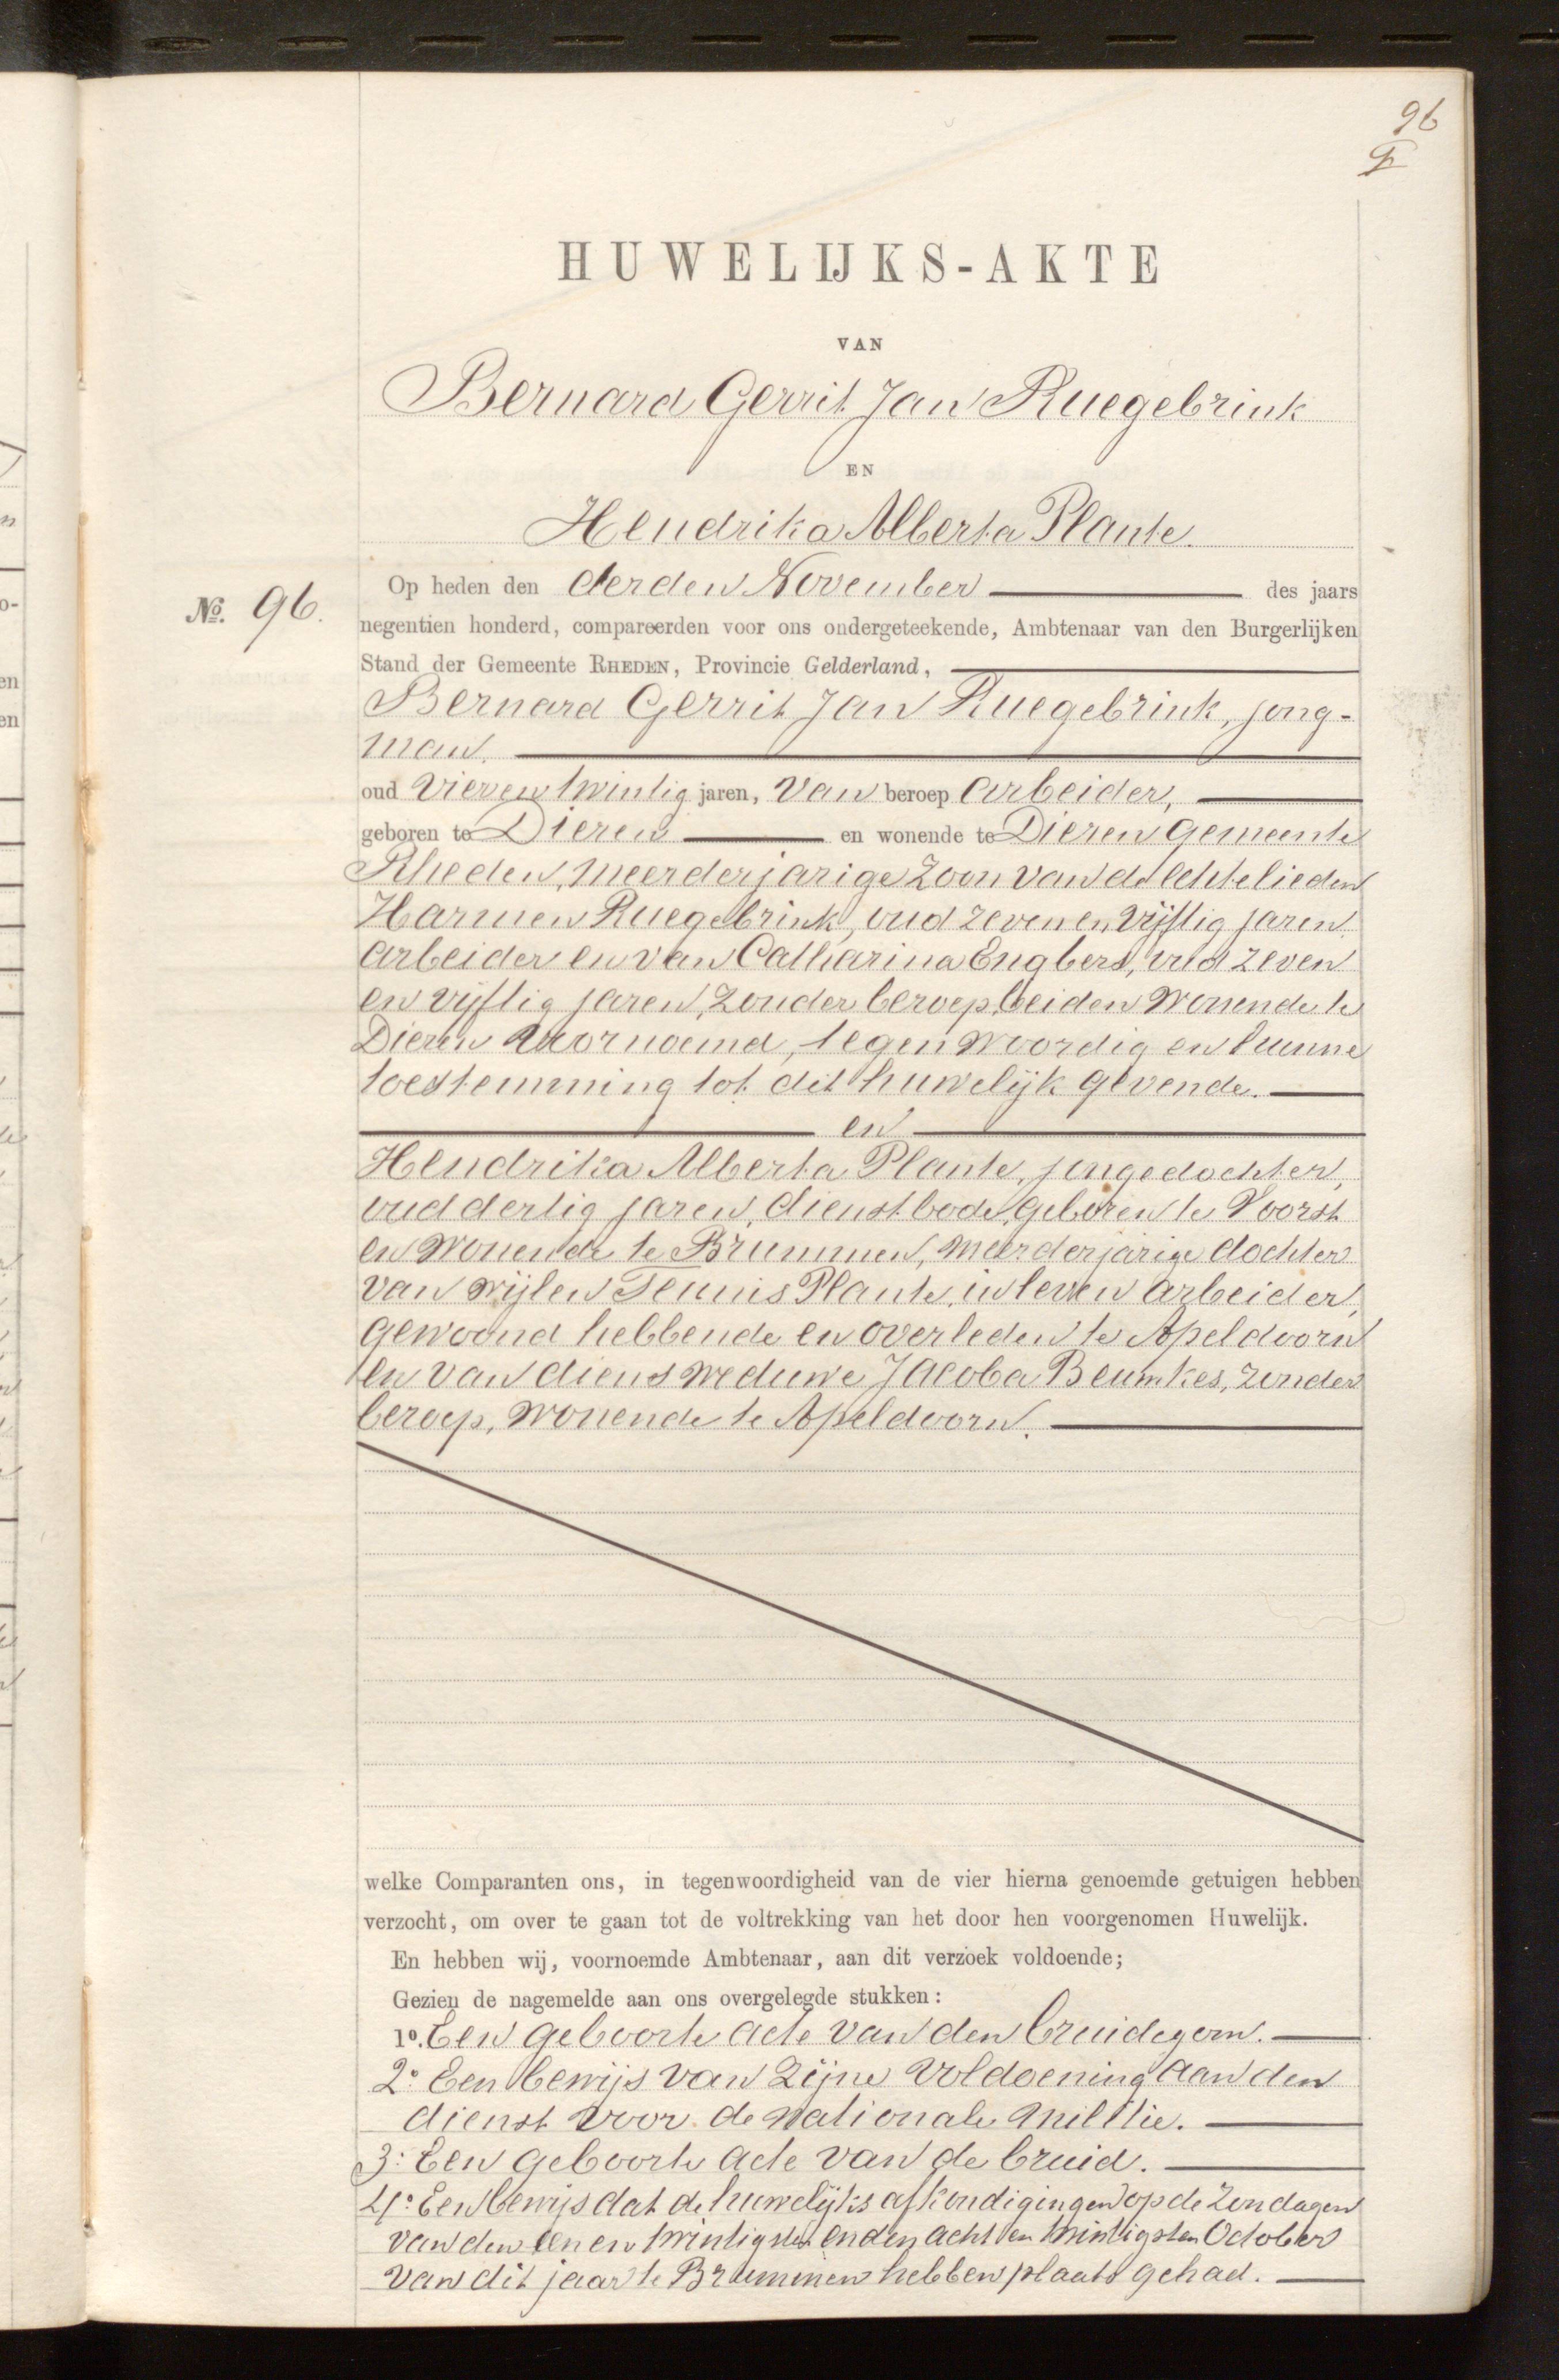 96
HUWELIJKS-AKTE
VAN
Bernard Gerrit Jan Ruegebrink
EN
Hendrika Alberta Plante.
No. 96.
Op heden den derden November des jaars
negentien honderd, compareerden voor ons ondergeteekende, Ambtenaar van den Burgerlijken
Stand der Gemeente RHEDEN, Provincie Gelderland,
Bernard Gerrit Jan Ruegebrink, jong-
man,
oud vierentwintig jaren, van beroep arbeider,
geboren te Dieren en wonende te Dieren gemeente
Rheden, meerderjarige zoon van de echtelieden
Harmen Ruegebrink, oud zeven en vijftig jaren
arbeider en van Catharina Engbers, oud zeven
en vijftig jaren, zonder beroep, beiden wonende te
Dieren voornoemd, tegenwoordig en hunne
toestemming tot dit huwelijk gevende.
en
Hendrika Alberta Plante, jongedochter,
oud dertig jaren, dienstbode, geboren te Voorst
en wonende te Brummen, meerderjarige dochter
van wijlen Teunis Plante, in leven arbeider,
gewoond hebbende en overleden te Apeldoorn
en van diens weduwe Jacoba Beumkes, zonder
beroep, wonende te Apeldoorn.
welke Comparanten ons, in tegenwoordigheid van de vier hierna genoemde getuigen hebben
verzocht, om over te gaan tot de voltrekking van het door hen voorgenomen Huwelijk.
En hebben wij, voornoemde Ambtenaar, aan dit verzoek voldoende;
Gezien de nagemelde aan ons overgelegde stukken:
1o. Een geboorte acte van den bruidegom.
2o Een bewijs van zijne voldoening aan den
dienst voor de nationale militie.
3o Een geboorte acte van de bruid.
4o Een bewijs dat de huwelijks afkondigingen op de Zondagen
van den een en twintigsten en den acht en twintigsten October
van dit jaar te Brummen hebben plaats gehad.